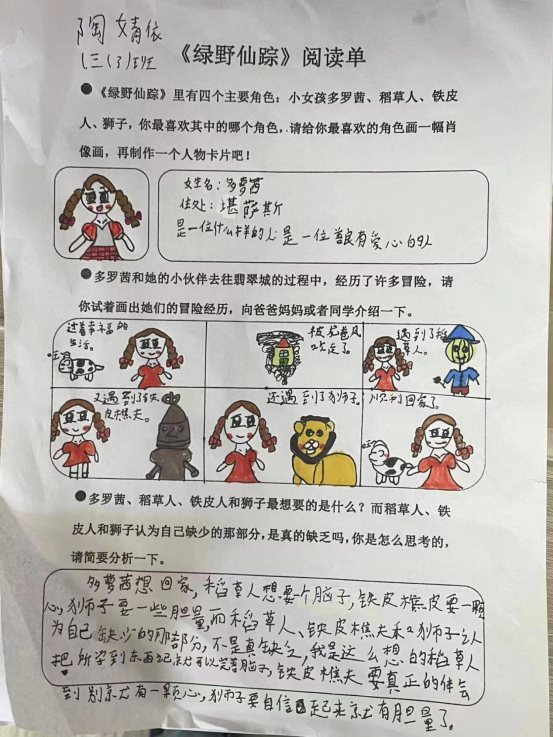 陶婧依
三(3)班
《绿野仙踪》阅读单
●《绿野仙踪》里有四个主要角色：小女孩多罗茜、稻草人、铁皮
人、狮子，你最喜欢其中的哪个角色，请给你最喜欢的角色画一幅肖
像画，再制作一个人物卡片吧！
女生名：多萝茜
住处：堪萨其斯
是一位什么样的人：是一位善良有爱心的人
●多罗茜和她的小伙伴去往翡翠城的过程中，经历了许多冒险，请
你试着画出她们的冒险经历，向爸爸妈妈或者同学介绍一下。
过着幸福的
生活。
被龙卷风
吹走了。
遇到了稻
草人。
又遇到了铁
皮樵夫。
还遇到了狮子。
顺利回家了。
●多罗茜、稻草人、铁皮人和狮子最想要的是什么？而稻草人、铁
皮人和狮子认为自己缺少的那部分，是真的缺乏吗，你是怎么思考的，
请简要分析一下。
多萝茜想回家，稻草人想要个脑子，铁皮樵皮要一颗
心，狮子要一些胆量，而稻草人、铁皮樵夫和狮子认
为自己缺少的那部分，不是真缺乏，我是这么想的稻草人
把所学到东西记住就可以完善脑子，铁皮樵夫要真正的体会
到别就有一颗心，狮子要自信起来就有胆量了。